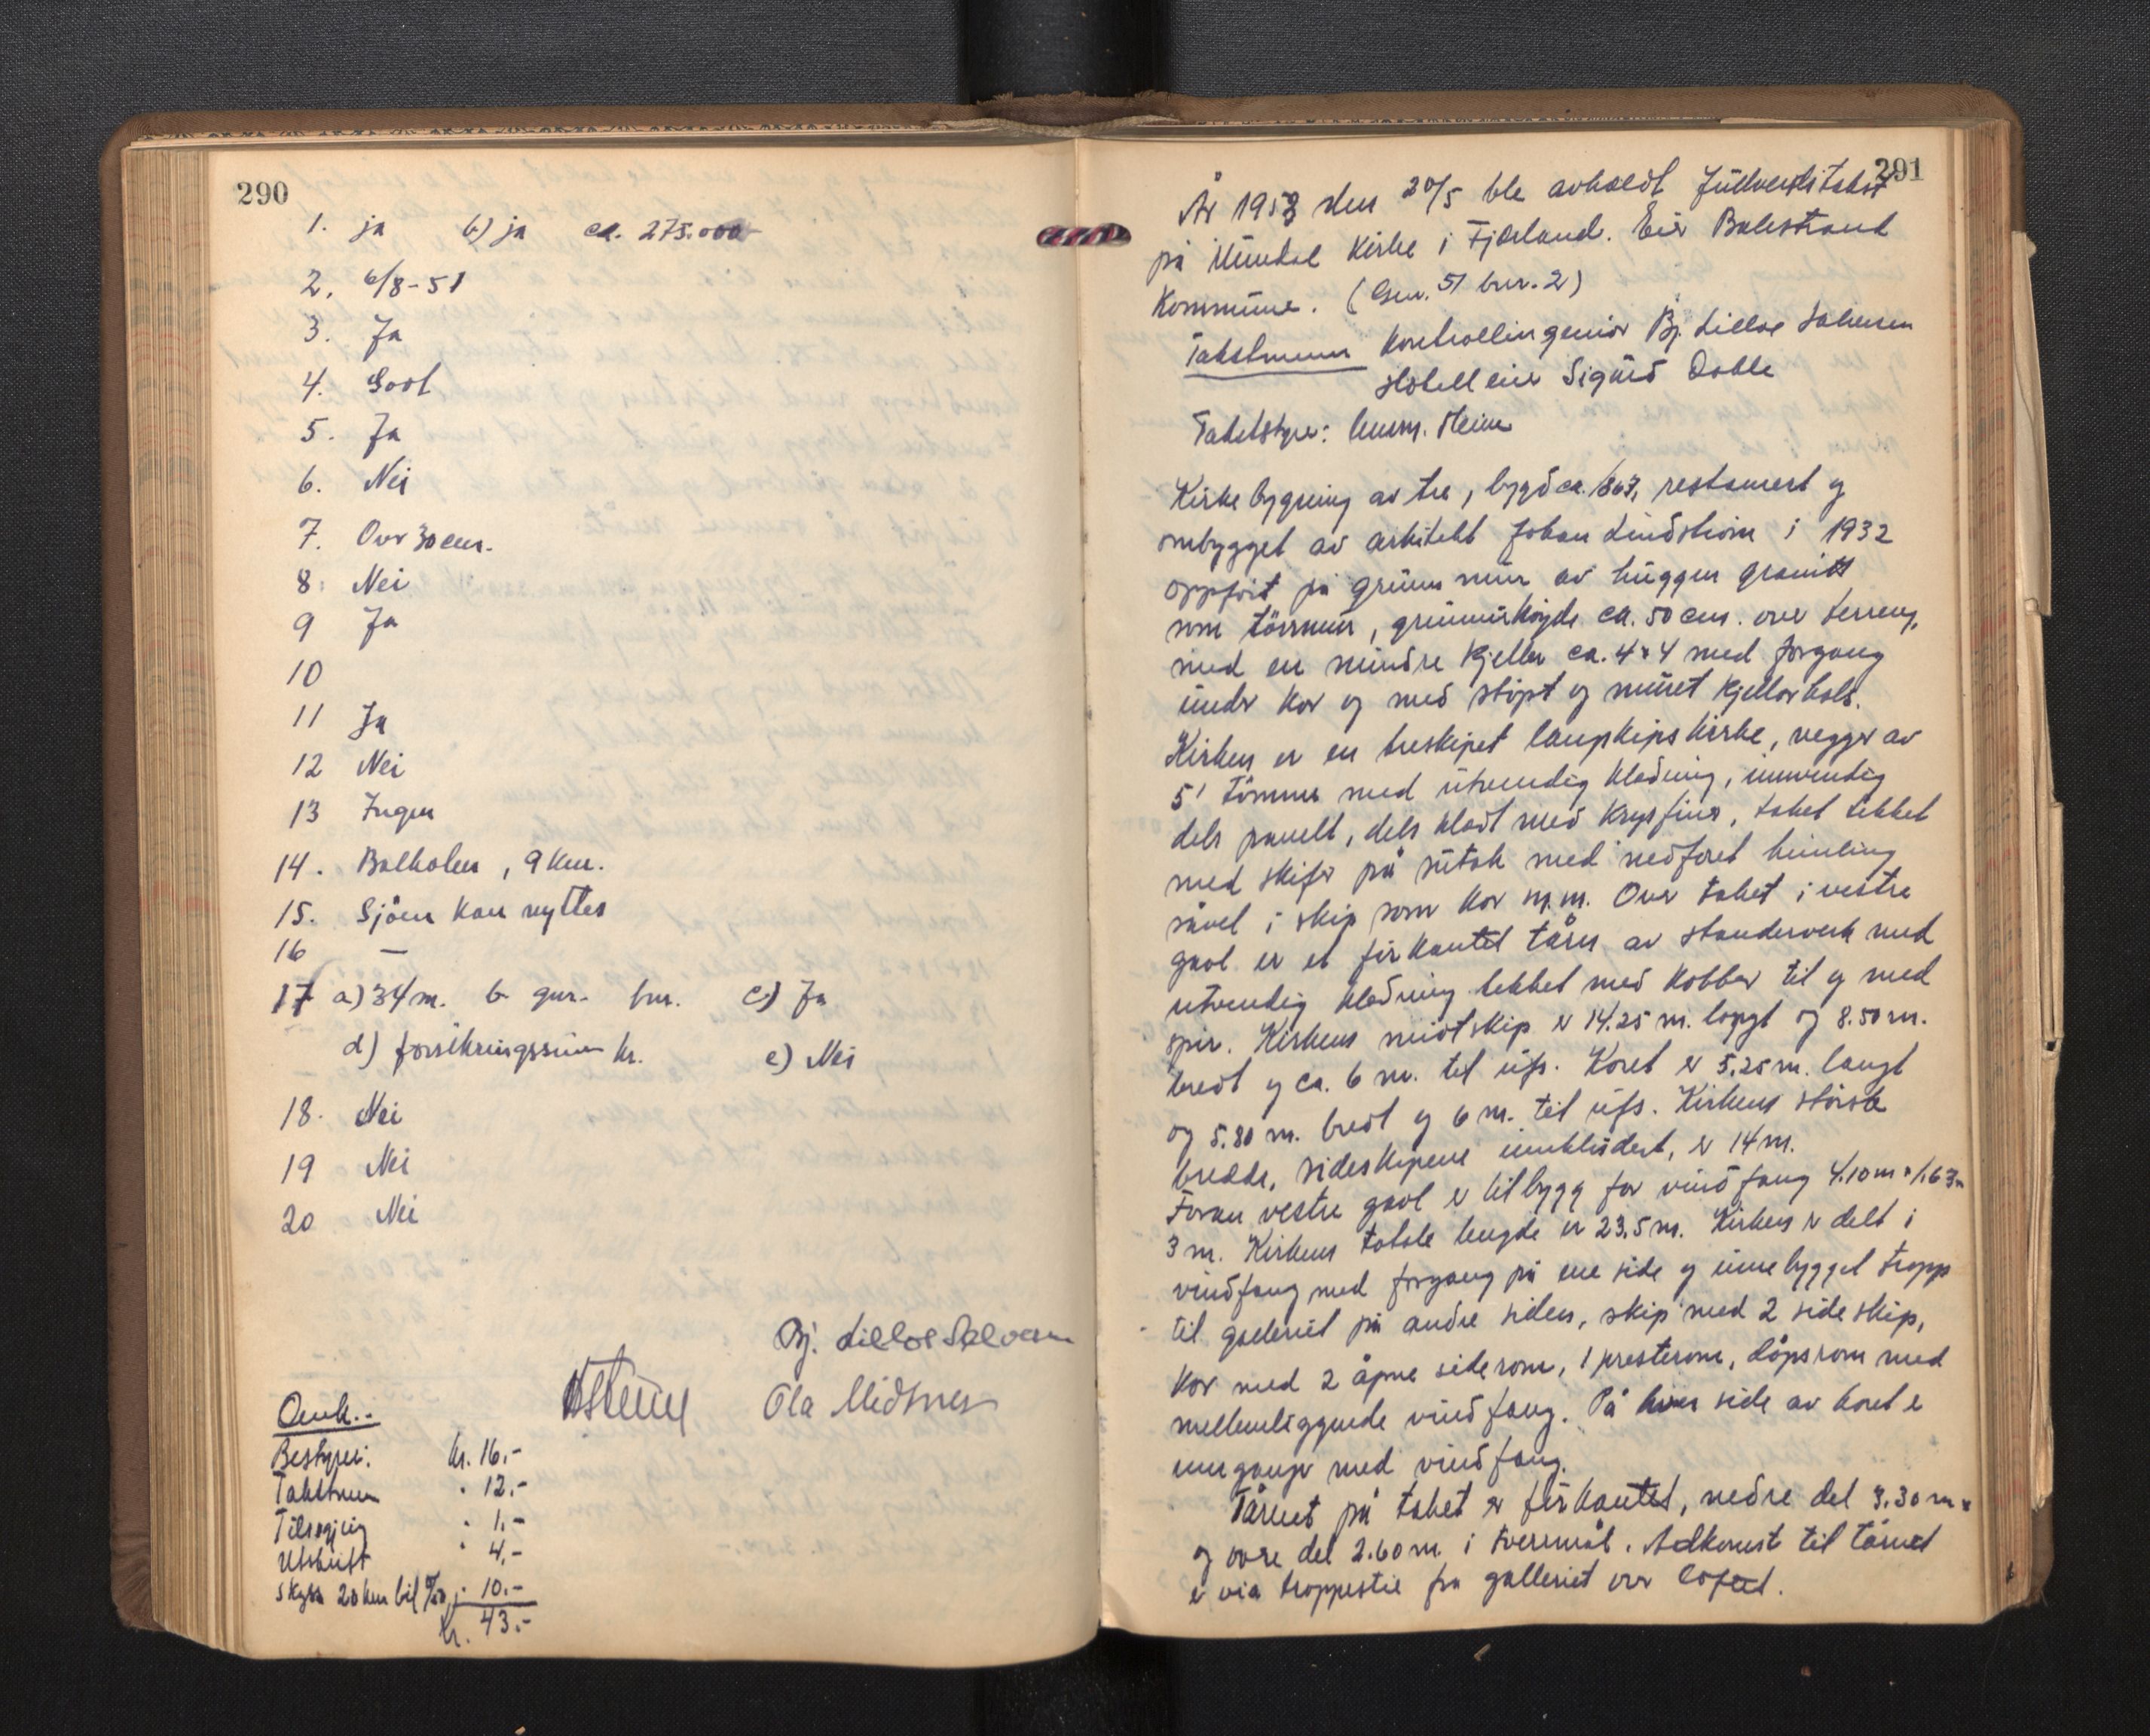 290
1. ja b) ja ca. 275.000
2. 6/8-51
3. Ja
4. Godt
5. Ja
6. Nei
7. Over 30 cm.
8. Nei
9 Ja
10
11 Ja
12 Nei
13 Ingen
14. Balholm, 9 km.
15. Sjøen kan nyttes
16 —
17 a) 34 m. b gnr. bnr. c) Ja
d) forsikringssum kr. e) Nei
18. Nei
19 Nei
20 Nei
Bj. Lilloe Salvesen
Ola Midtnes
Omk.:
Bestyrer: kr. 16.-
Takstmenn " 12.-
Tilsagjing " 1.-
Utskrift " 4.-
Skyss 20 km bil " 10.-
kr. 43.-
291
År 1953 den 20/5 ble avholdt fullverditakst
på Mundal Kirke i Fjærland. Eier Balestrand
Kommune. (Gnr. 51 bnr. 2)
Takstmenn Kontrollingeniør Bj. Lilloe Salvesen
Hotelleier Sigurd Dahle
Takstbyr: lensm. Steine
Kirkebygning av tre, bygd ca. 1863, restaurert og
ombygget av arkitekt Johan Lindstrøm i 1932
oppført på grunnmur av huggen granitt
som tørrmur, grunnmurhøyde ca. 50 cm. over terreng,
med en mindre kjeller ca. 4 x 4 med forgang
under kor og med støpt og muret kjellerhals.
Kirken er en treskipet langskipskirke, vegger av
5" tømmer med utvendig kledning, innvendig
dels panelt, dels kledt med krysfiner, taket tekket
med skifer på sutak med nedforet himling
såvel i skip som kor m.m. Over taket i vestre
gavl er et firkantet tårn av stenderverk med
utvendig kledning tekket med kobber til og med
spir. Kirkens midtskip er 14.25 m. langt og 8.50 m.
bredt og ca. 6 m. til ufs. Koret er 5.25 m. langt
og 5.80 m. bredt og 6 m. til ufs. Kirkens største
bredde, sideskipene innkludert, er 14 m.
Foran vestre gavl er tilbygg for vindfang 4.10 m x 1.63 x
3 m. Kirkens totale lengde er 23.5 m. Kirken er delt i
vindfang med forgang på ene side og innebygget trapp
til galleriet på andre siden, skip med 2 sideskip,
kor med 2 åpne siderom, 1 presterom, dåpsrom med
mellemliggende vindfang. På hver side av koret er
innganger med vindfang.
Tårnet på taket er firkantet, nedre del 3.30 m x
og øvre del 2.60 m i tverrmål. Adkomst til tårnet
er via trappestie fra galleriet over loftet.